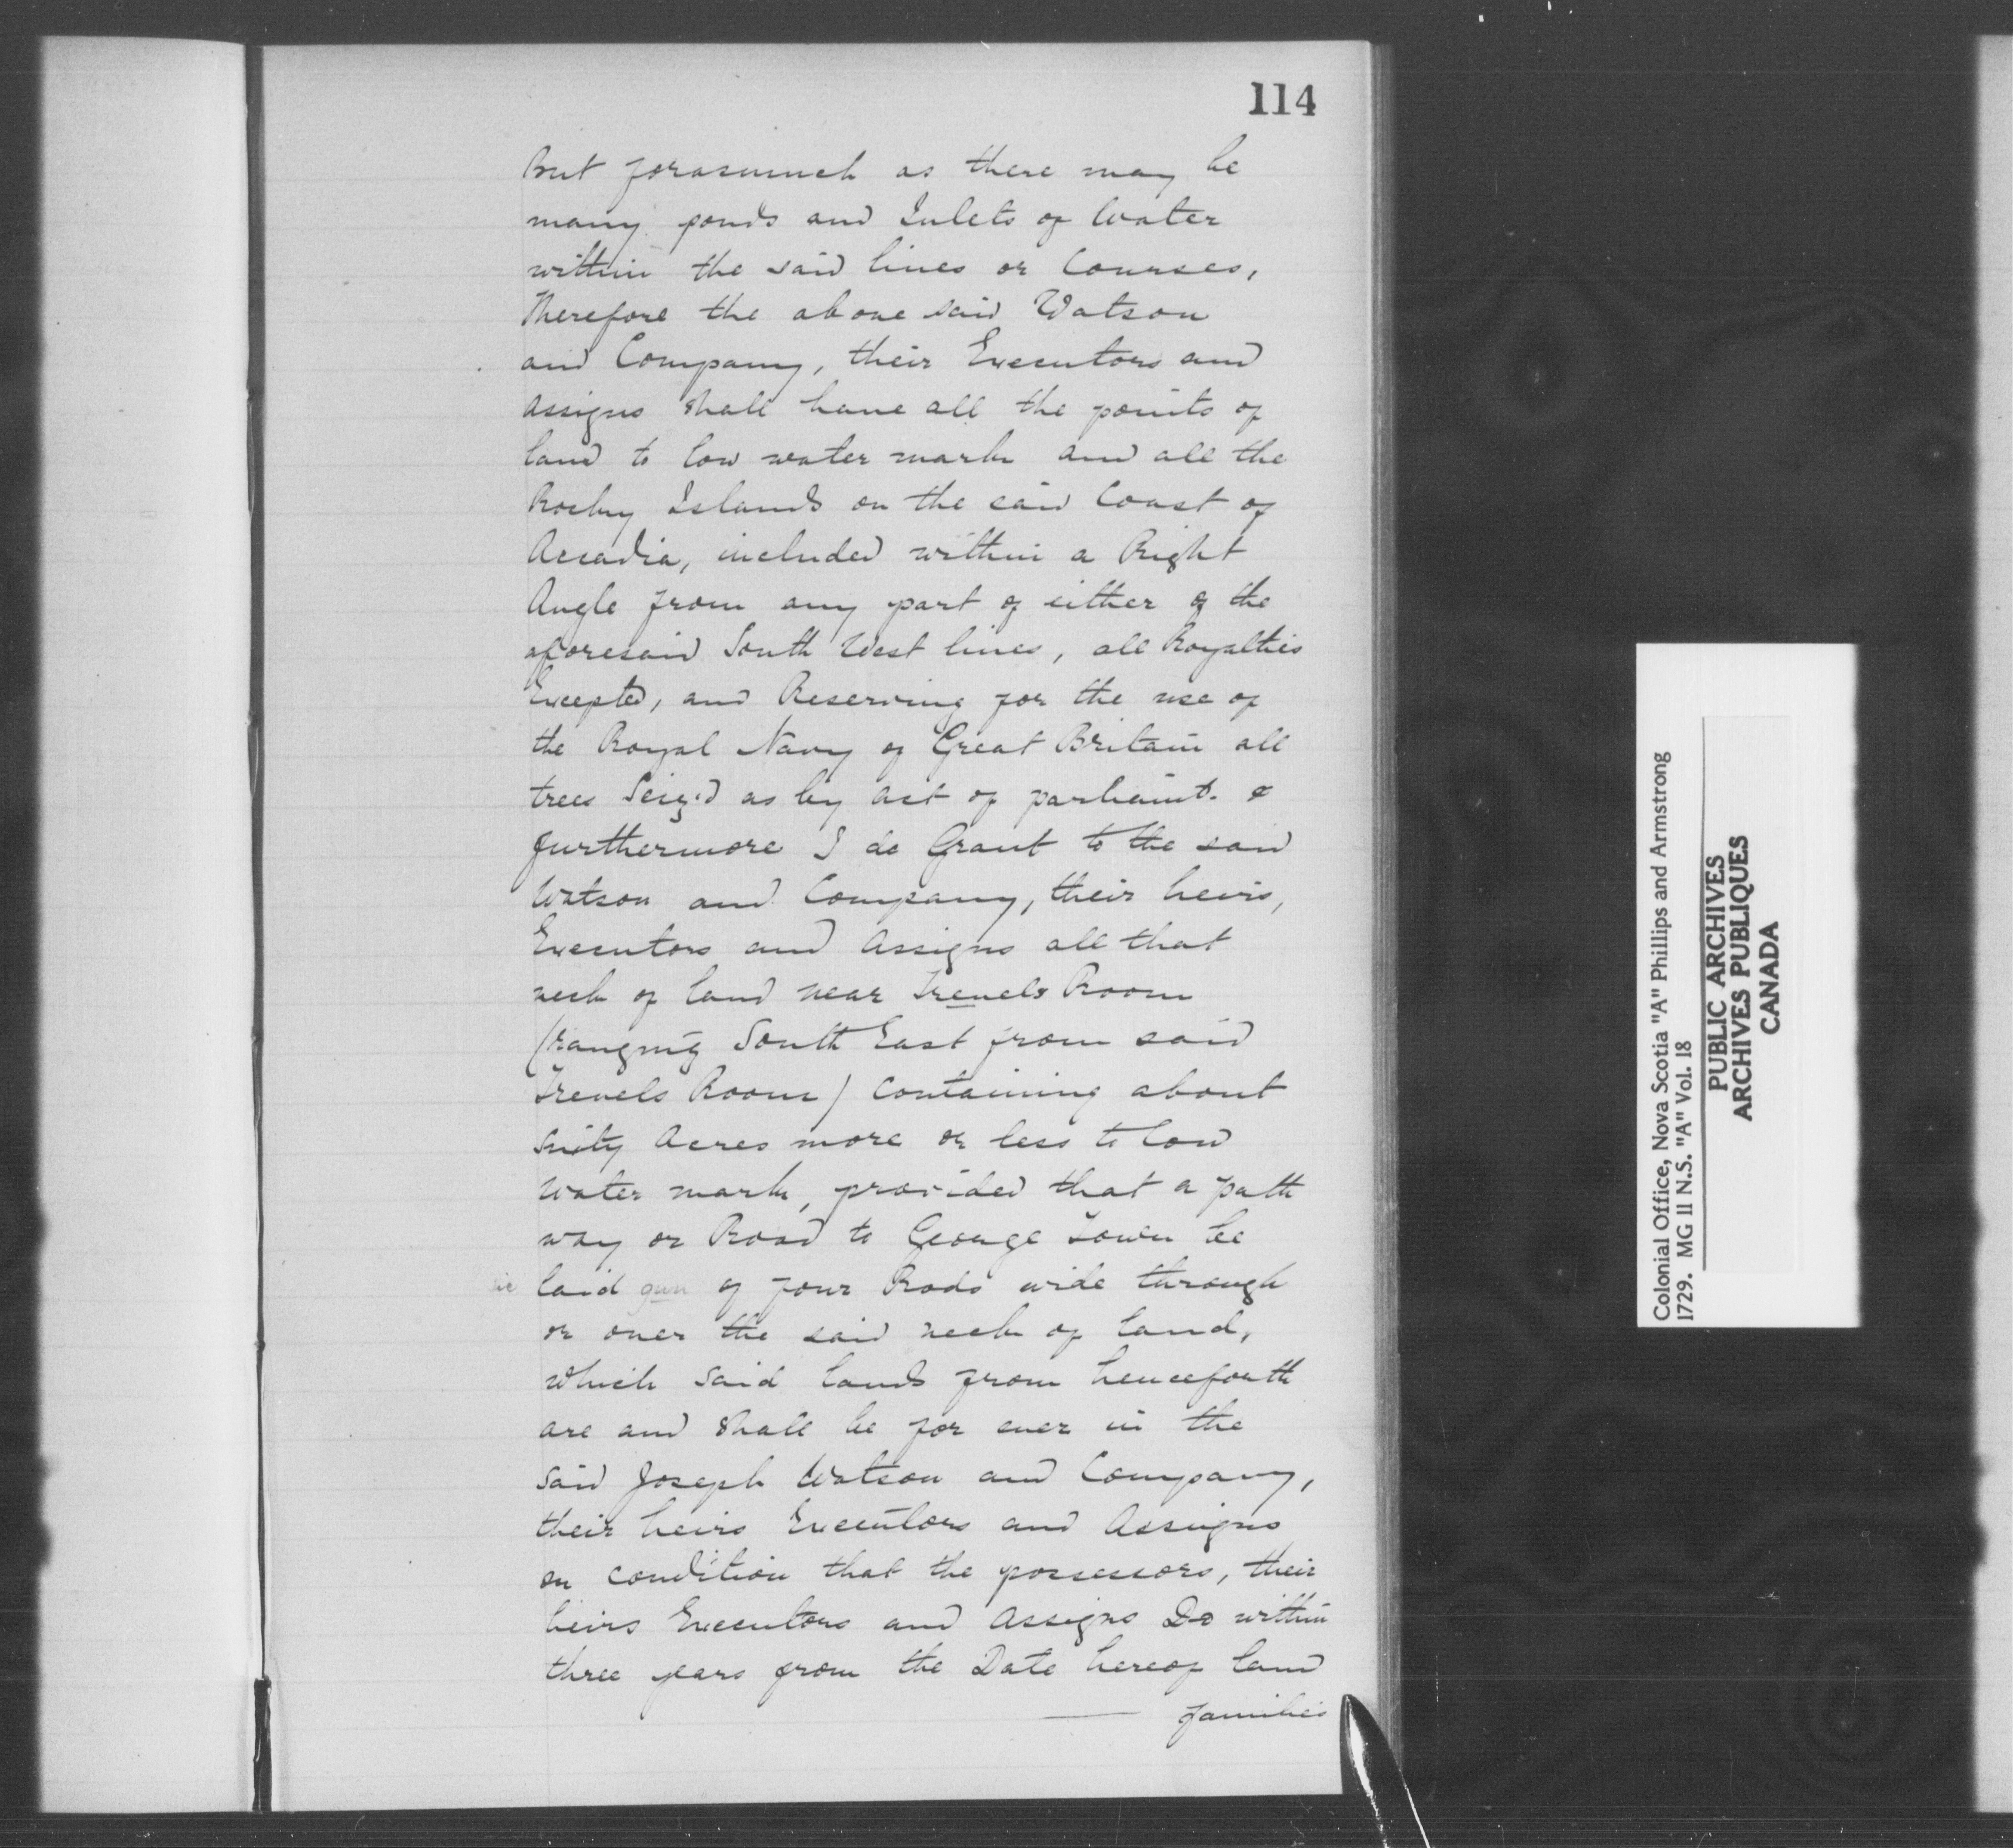 114
But forasmuch as there may be
many ponds and Inlets of Water
within the said lines or Courses,
Therefore the above said Watson
and Company, their Executors and
assigns shall have all the points of
land to low water mark and all the
Rocky Islands on the said Coast of
Accadia, included within a Right
Angle from any part of either of the
aforesaid South West lines, all Royalties
Excepted, and Reserving for the use of
the Royal Navy of Great Britain all
trees Seiz'd as by act of parliamt. &
furthermore I do Grant to the said
Watson and Company, their heirs,
Executors and Assigns all that
neck of land near Trevels Room
(ranging South East from said
Trevels Room) containing about
Sixty Acres more or less to low
water mark, provided that a path
way or Road to George Town be
laid of four Rods wide through
or over the said neck of land,
which said lands from henceforth
are and shall be for ever in the
said Joseph Watson and Company,
their heirs Executors and Assigns
on condition that the possessors, their
heirs Executors and Assigns Do within
three years from the Date hereof land
families
Colonial Office, Nova Scotia "A" Phillips and Armstrong
1729. MG 11 N.S. "A" Vol. 18
PUBLIC ARCHIVES
ARCHIVES PUBLIQUES
CANADA